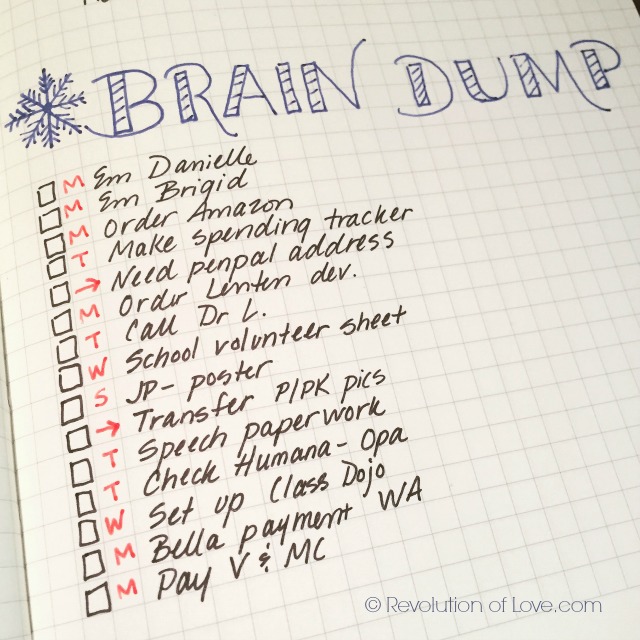 BRAIN DUMP
M Em Danielle
M Em Brigid
M Order Amazon
T Make spending tracker
→ Need penpal address
M Order Lenten dev.
T Call Dr L.
W School volunteer sheet
S JP- poster
→ Transfer P/PK pics
T Speech paperwork
T Check Humana- Opa
W Set up Class Dojo
M Bella payment WA
M Pay V & MC
© Revolution of Love.com